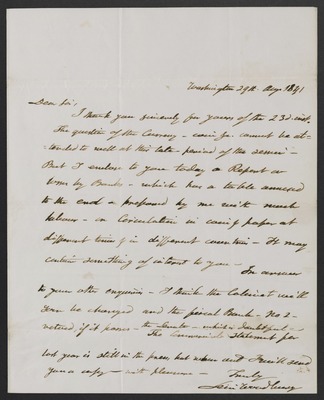 Washington 29th Aug. 1841
Dear Sir,
I thank you sincerely for yours of the 23d inst.
The question of the Currency - coin &c. cannot be at-
tended to well at this late period of the session -
But I enclose to you today a Report on
by Banks - which has a table annexed
to the end & prepared by me with much
labour - on Circulation in coin & paper at
different times & in different countries - It may
contain something of interest to you -
In answer
to your other enquiries - I think the Cabinet will
soon be changed and the fiscal Bank - No 2 -
vetoed, if it passes - the Senate - which is doubtful -
The Commercial statement for
last year is still in the press, but when out I will send
you a copy - with pleasure - Truly
Levi Woodbury